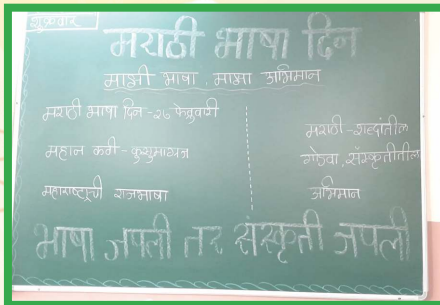 शुक्रवार
मराठी भाषा दिन
माझी भाषा, माझा अभिमान
मराठी भाषा दिन - २७ फेब्रुवारी
महान कवी - कुसुमाग्रज
महाराष्ट्राची राजभाषा
मराठी - शब्दांतील
गोडवा, संस्कृतीतील
अभिमान
भाषा जपली तर संस्कृती जपली